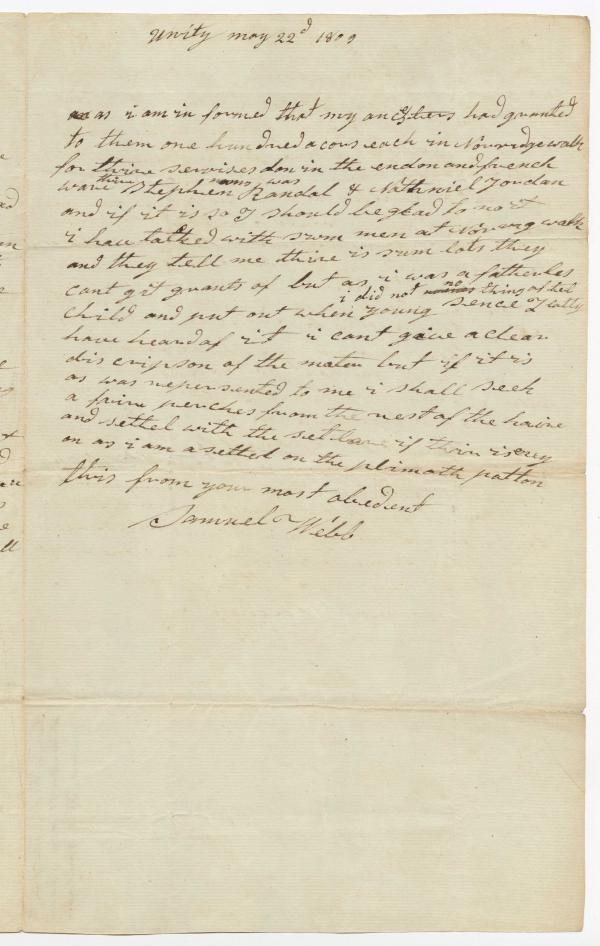 Unity may 22d 1809
as i am in formed that my ancesters had granted
to them one hundred acors each in Norridgewalk
for thire servises don in the endon and french
ware thire nams was Stephen Randal & Nathniel Jordan
and if it is so I should be glad to no it
i have talked with sum men at Norrig walk
and they tell me thire is sum lots they
cant git grants of but as i was a fatherles
child and put out when young i did not no thing of
sence I
have heard of it i cant give a clear
discripson of the mater but if it is
as was repersented to me i shall seek
a purches from the rest of the
and settel with the if is eny
on as i am a settled on the plimoth patton
this from your most obedent
Samuel Webb